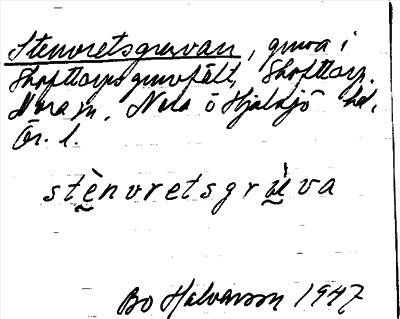 Stenvretsgruvan, gruva i
Skofttorps gruvfält, Skofttorp.
Nora sn, Nora o Hjulsjö hd,
Ör. l.
stènvretsgru̇va
Bo Halvarson 1947